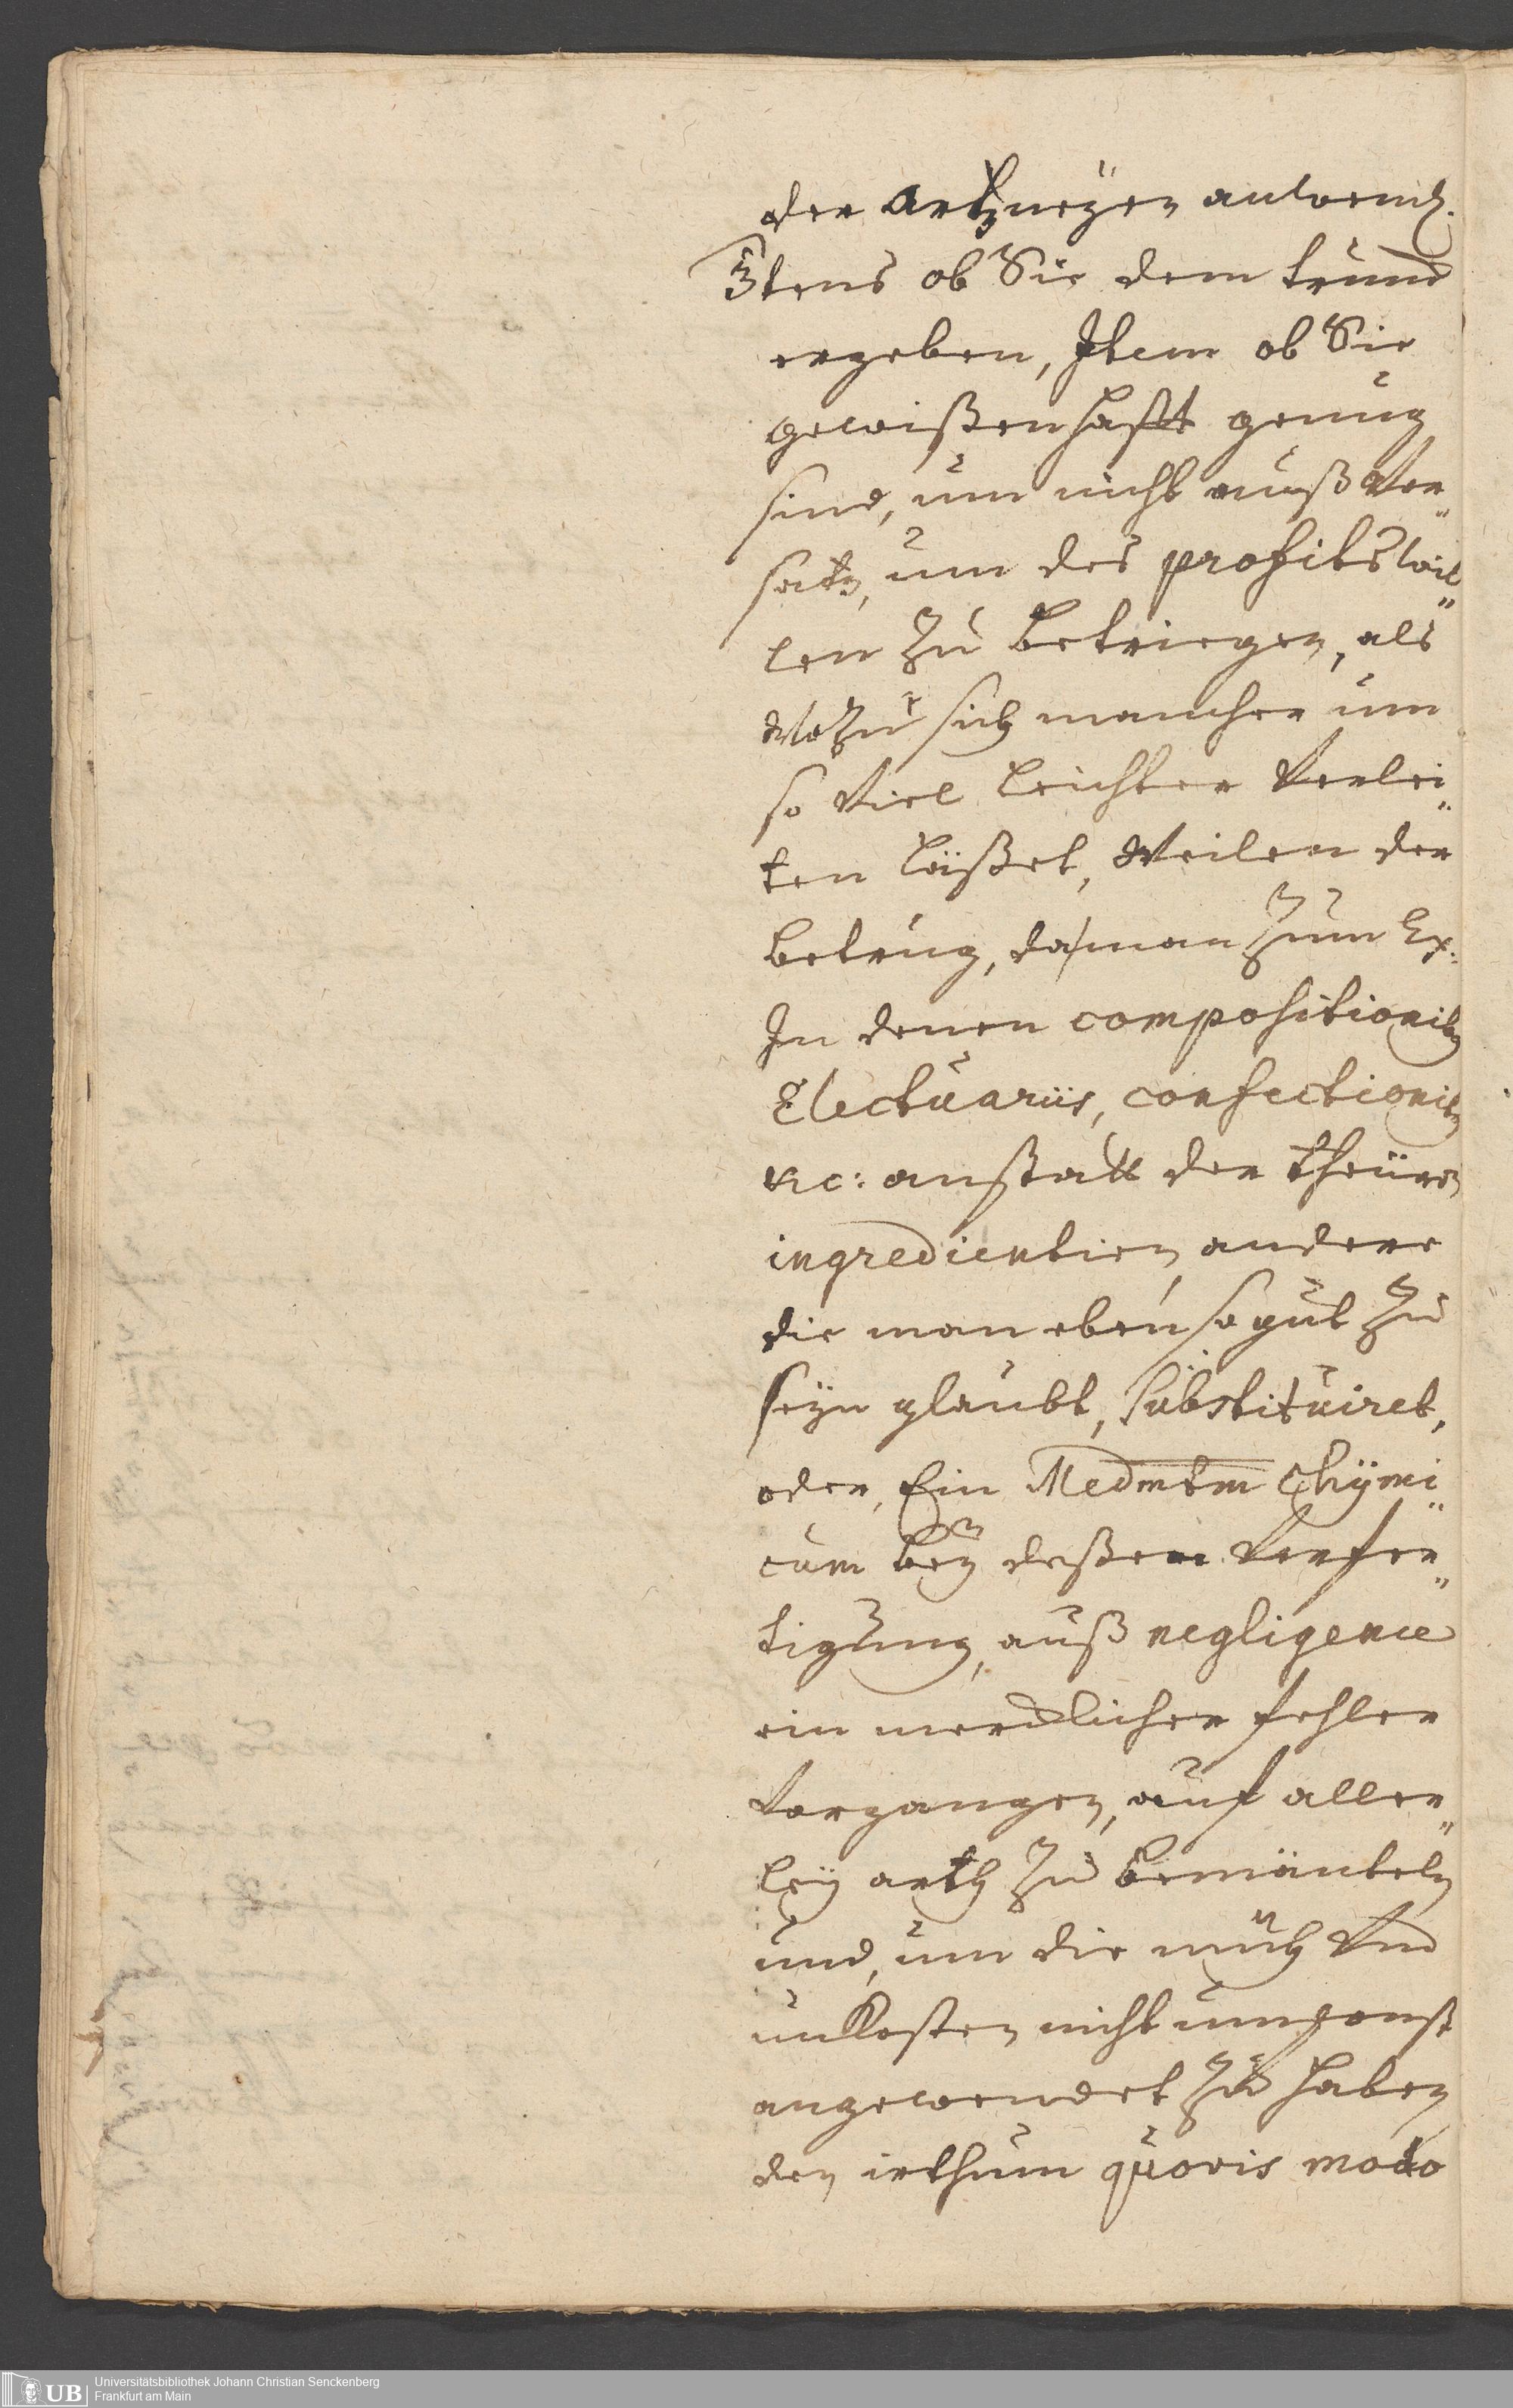 der Artzneÿen anwend.
3tens ob Sie dem trunck
ergeben, Item ob Sie
gewißenhafft genug
sind, um nicht auß Vor„
satz, um des profits wil„
len zu betriegen, als
Wozu sich mancher um
so Viel leichter Verlei„
ten läßet, Weilen der
betrug, da man zum Ex.
In denen compositionib9
Electuariis, confectionib9
&c: anstatt der theüren
ingredientien, andere
die man eben so gut zu
seÿn glaubt, substituiret,
oder, Ein Medmtm Chÿmi„
cum beÿ deßen Verfer„
tigung, auß negligence
ein mercklicher fehler
Vorgangen, auf aller„
leÿ arth zu bemänteln
und, um die müh Und
unkosten nicht umsonst
angewendet zu haben
den irthum quovis modo
UB Universitätsbibliothek Johann Christian Senckenberg
Frankfurt am Main